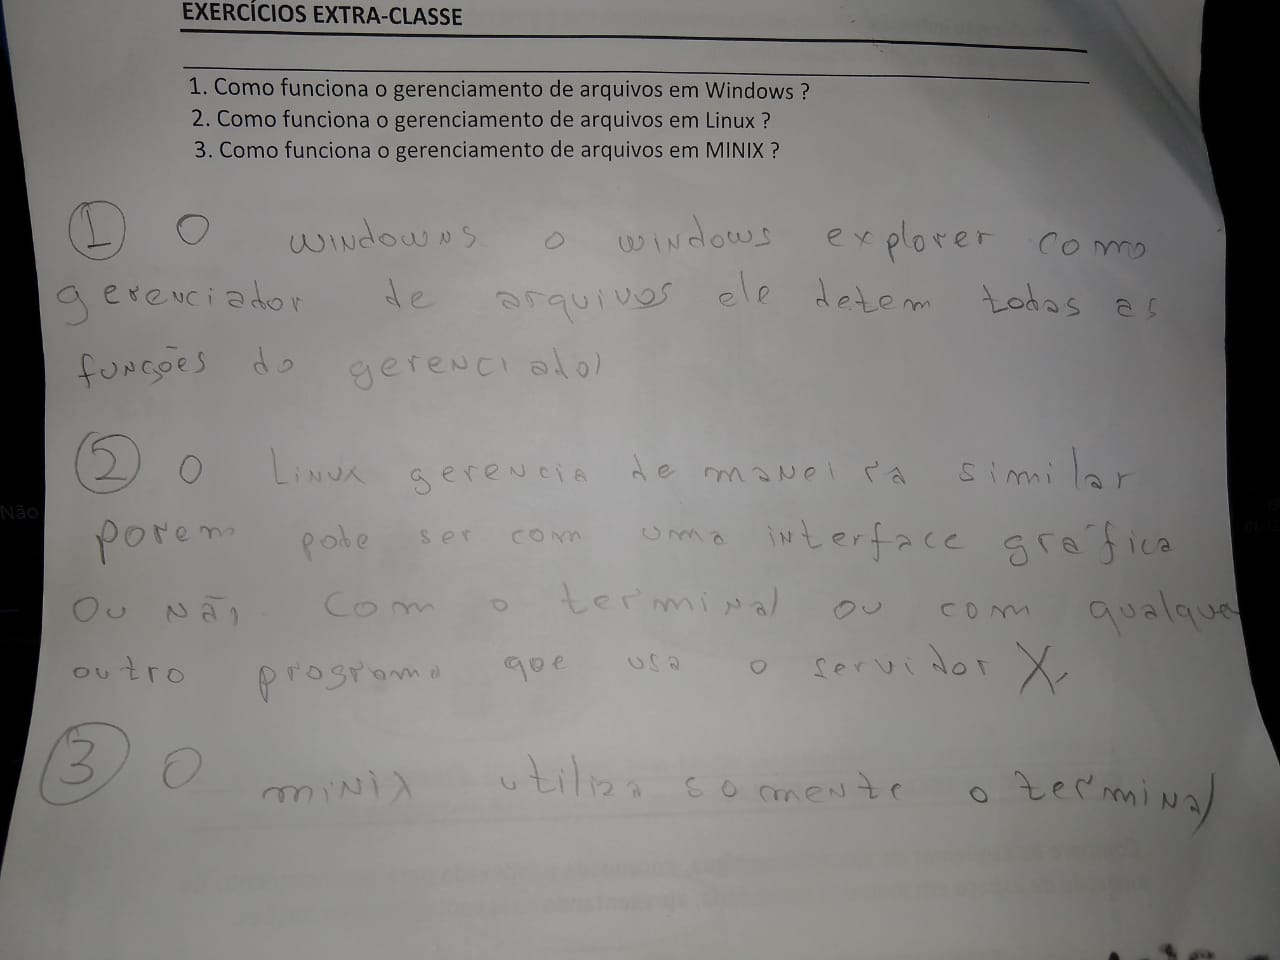 EXERCÍCIOS EXTRA-CLASSE
1. Como funciona o gerenciamento de arquivos em Windows ?
2. Como funciona o gerenciamento de arquivos em Linux ?
3. Como funciona o gerenciamento de arquivos em MINIX ?
1 O windowns o windows explorer como
gerenciador de arquivos ele detem todas as
funções do gerenciador
2 O Linux gerencia de maneira similar
porem pode ser com uma interface gráfica
ou não, com o terminal ou com qualque
outro programa que usa o servidor X,
3 O minix utiliza somente o terminal
Não